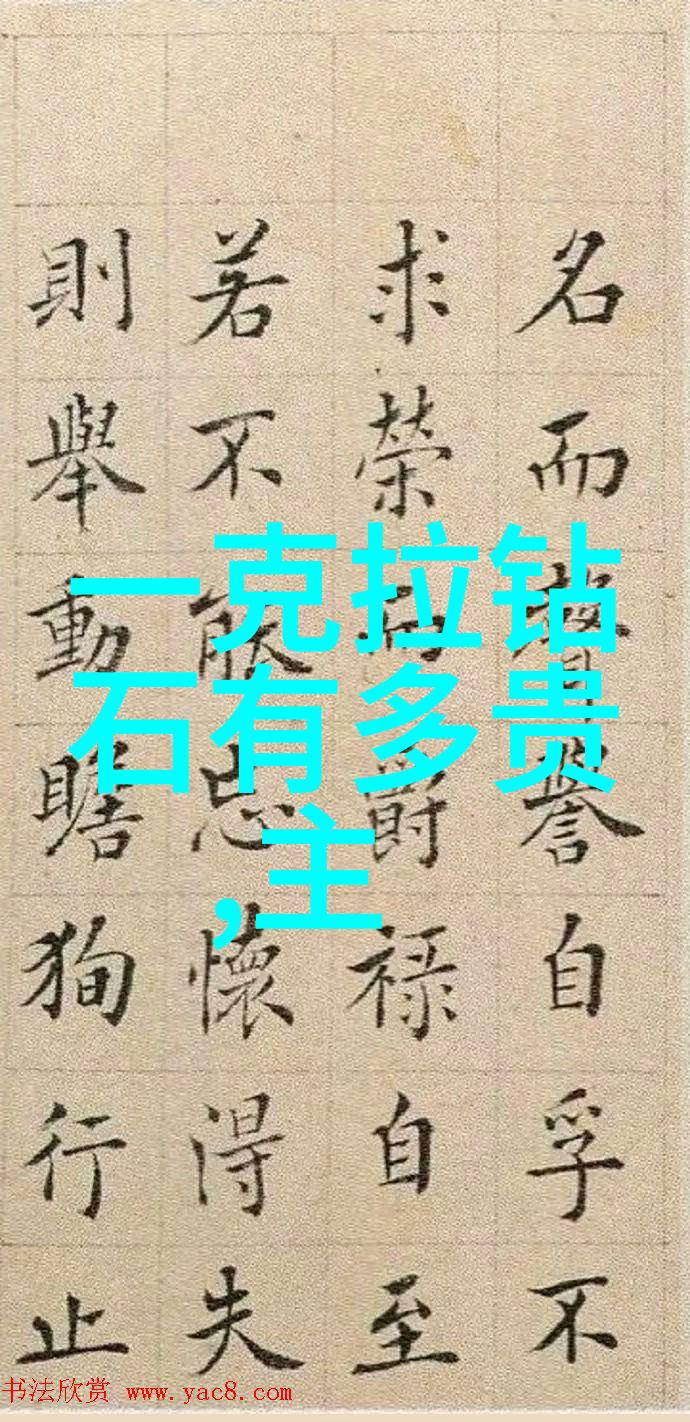 名而聲譽自孚不
求榮而爵禄自至
若不能忘懷得失
則舉動瞻狥行止
一克拉钻
石有多贵
,主
书法欣赏 www.yac8.com